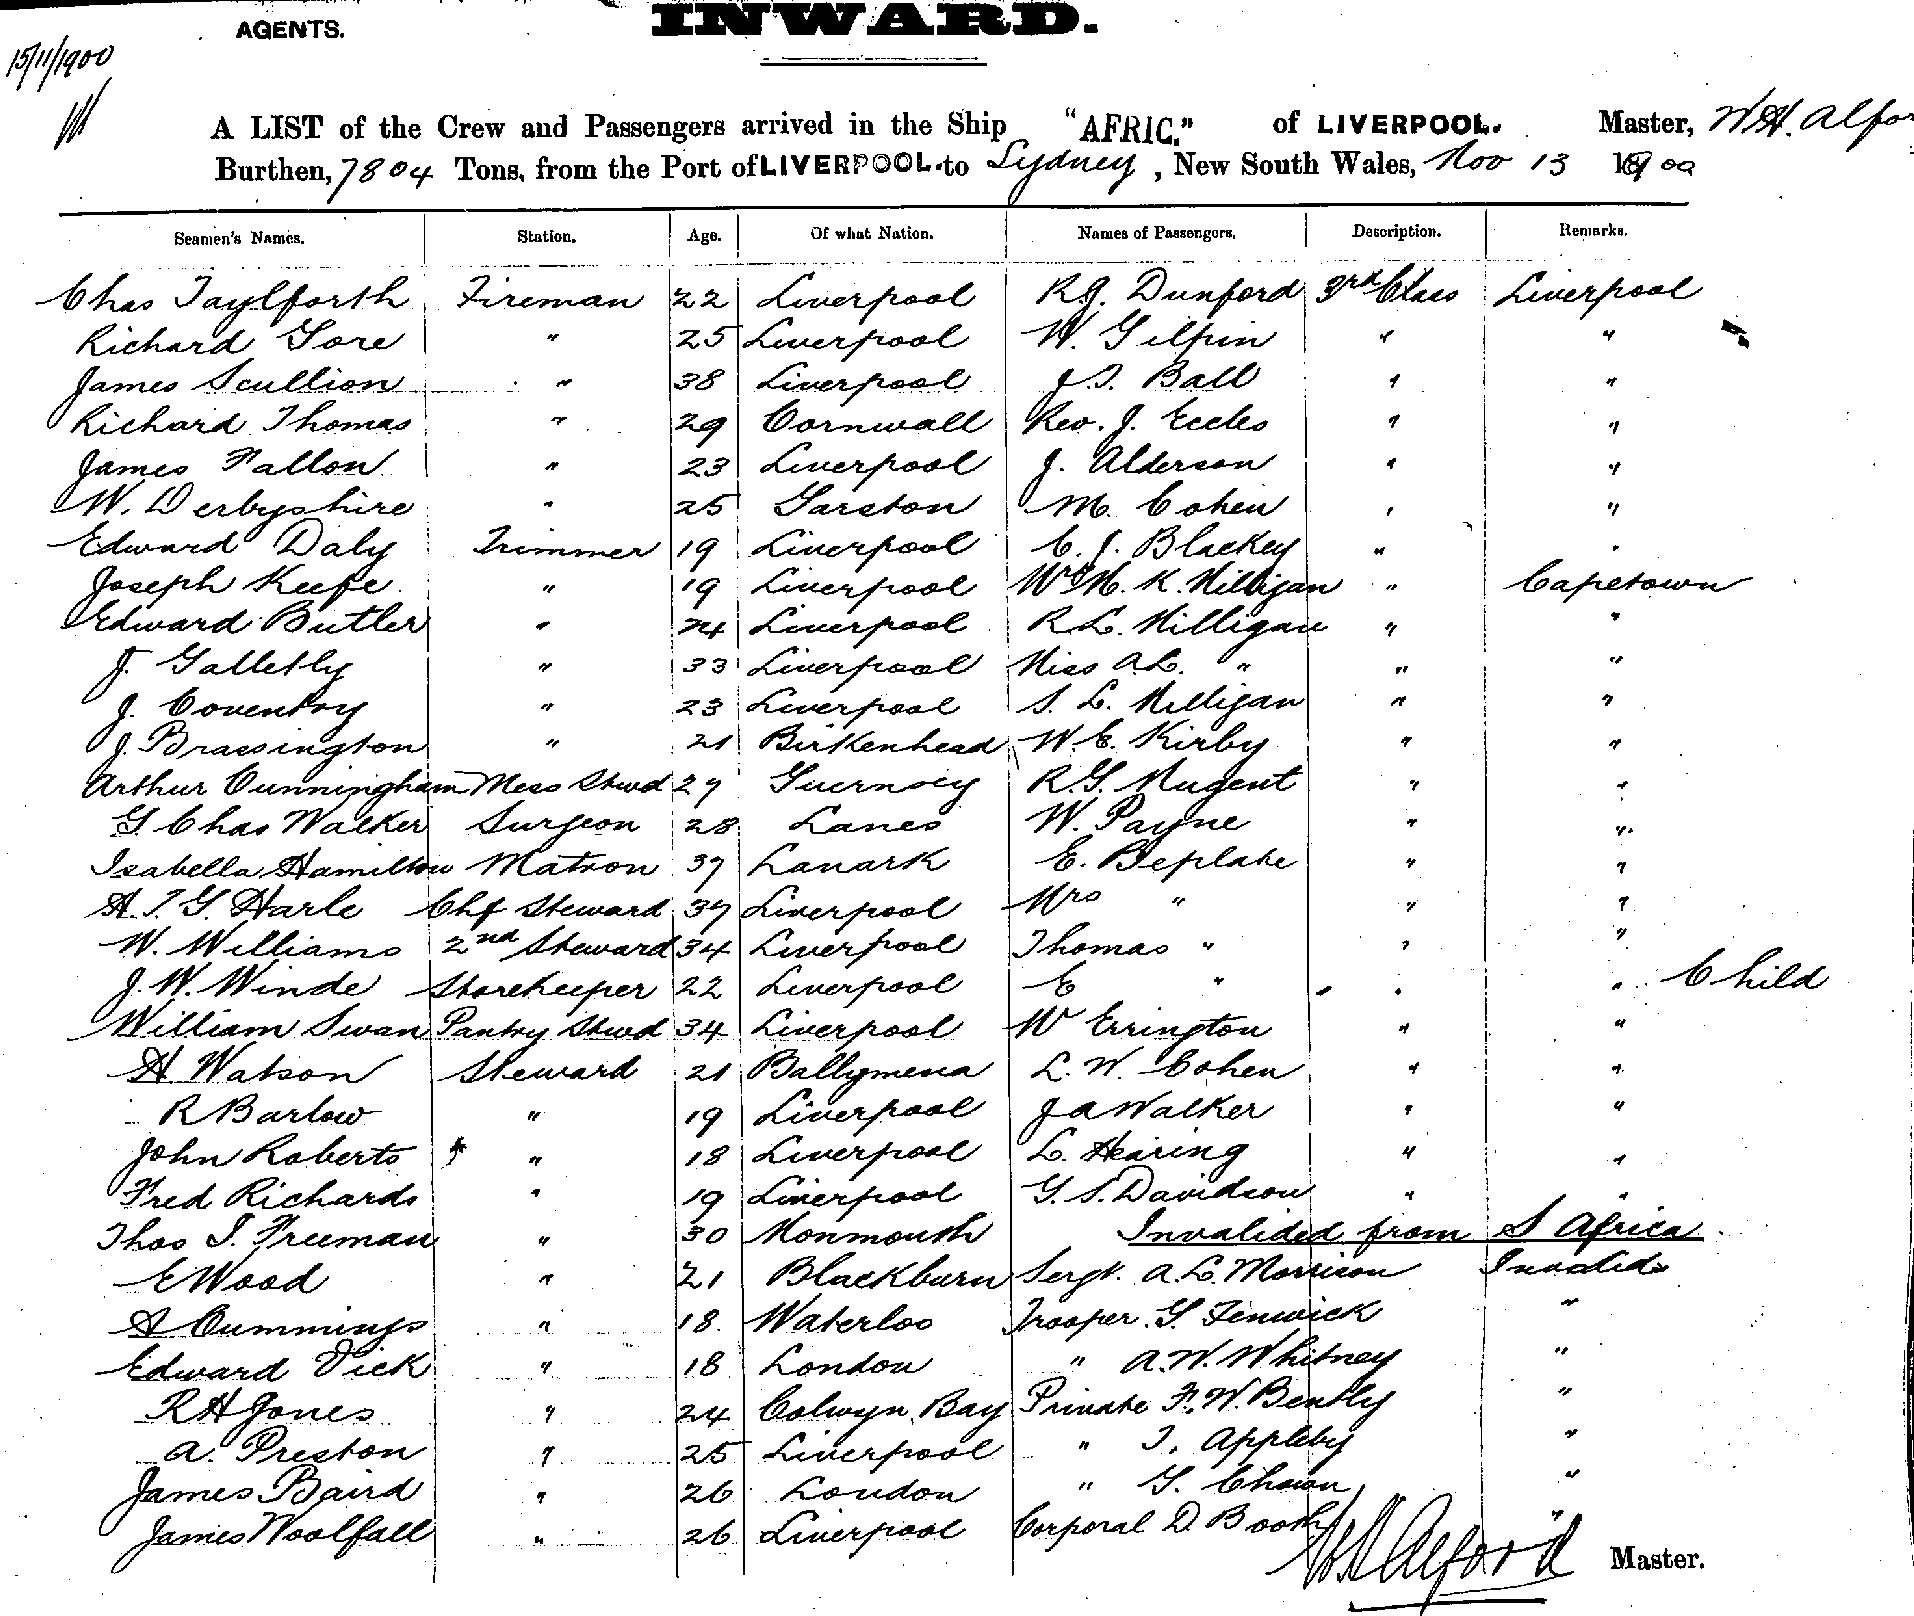 INWARD.
AGENTS.
15/11/1900
A LIST of the Crew and Passengers arrived in the Ship "AFRIC." of LIVERPOOL. Master, W.H. Alfor
Burthen, 7804 Tons, from the Port of LIVERPOOL. to Sydney, New South Wales, Nov 13 1900
Seamen's Names. Station. Age. Of what Nation. Names of Passengers. Description. Remarks.
Chas Taylforth Fireman 22 Liverpool R.J. Dunford 3rd Class Liverpool
Richard Gore " 25 Liverpool W. Gilpin " "
James Scullion " 38 Liverpool J.T. Ball " "
Richard Thomas " 29 Cornwall Rev. J. Eccles " "
James Fallon " 23 Liverpool J. Alderson " "
W. Derbyshire " 25 Garston M. Cohen " "
Edward Daly Trimmer 19 Liverpool C. J. Blackey " "
Joseph Keefe " 19 Liverpool M. K. Milligan " Capetown
Edward Butler " 24 Liverpool R.L. Milligan " "
J. Galletly " 33 Liverpool Miss A.L. " " "
J. Coventry " 23 Liverpool S. L. Milligan " "
J. Brassington " 21 Birkenhead W.E. Kirby " "
Arthur Cunningham Mess Stwd 29 Guernsey R.G. Nugent " "
G. Chas Walker Surgeon 28 Lancs W. Payne " "
Isabella Hamilton Matron 37 Lanark E. Beplate " "
H.T.G. Harle Chf Steward 37 Liverpool Mrs " " "
W. Williams 2nd Steward 34 Liverpool Thomas " " "
J.W. Winde Storekeeper 22 Liverpool E " " " Child
William Swan Pantry Stwd 34 Liverpool W Errington " "
H Watson Steward 21 Ballymena L. W. Cohen " "
R Barlow " 19 Liverpool J A Walker " "
John Roberts " 18 Liverpool L. Hearing " "
Fred Richards " 19 Liverpool G. S. Davidson " "
Thos J. Freeman " 30 Monmouth Invalided from S Africa
E Wood " 21 Blackburn Sergt. A.L. Morrison Invalided
A Cummings " 18 Waterloo Trooper G. Fenwick "
Edward Dick " 18 London " A.W. Whitney "
R H Jones " 24 Colwyn Bay Private F.W. Bently "
A. Preston " 25 Liverpool " T. Appleby "
James Baird " 26 London " G. Chown "
James Woolfall " 26 Liverpool Corporal D. Booth "
WH Alford Master.